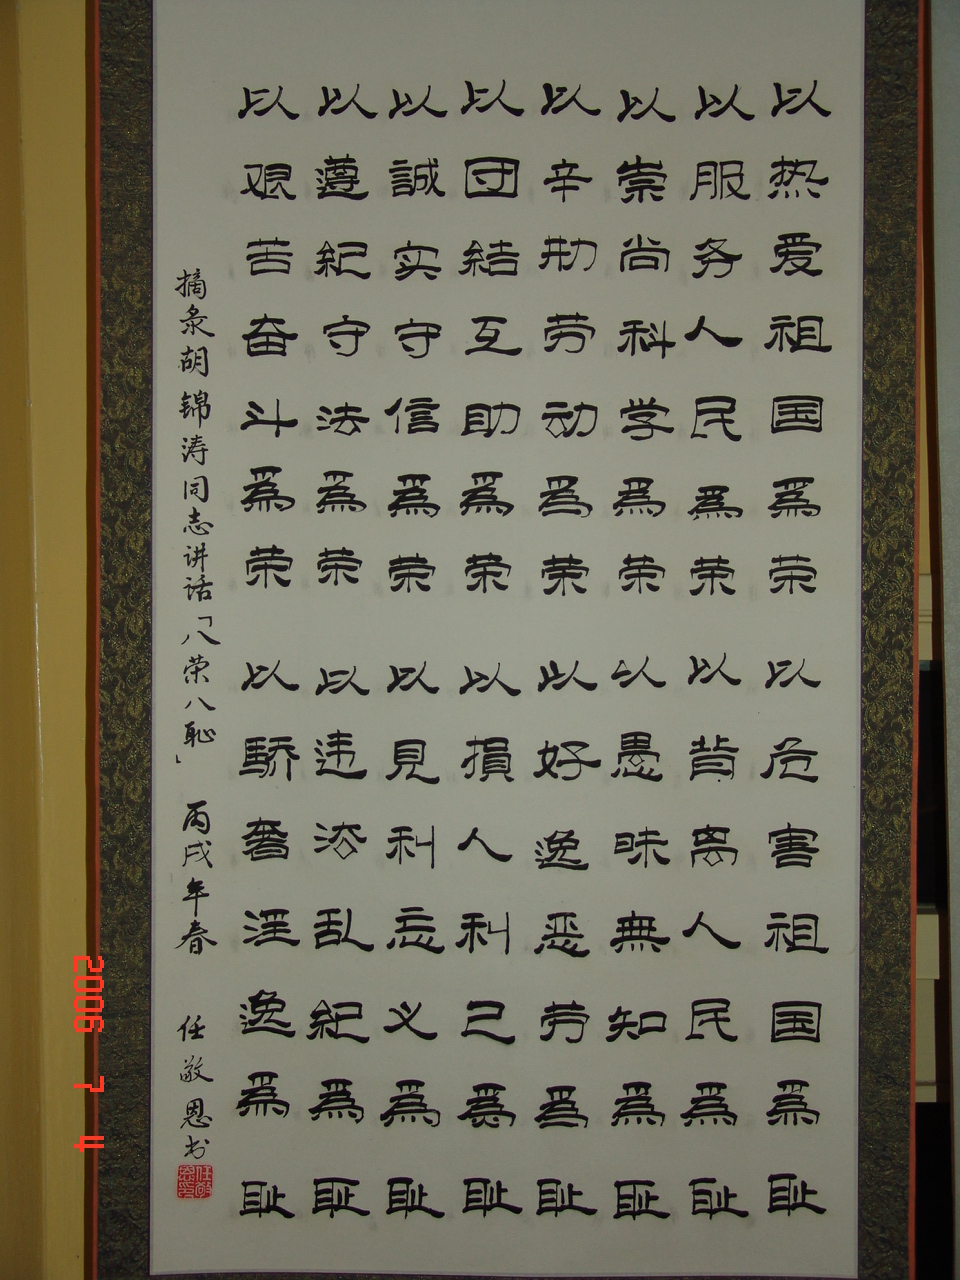 以热爱祖国爲荣 以危害祖国爲耻
以服务人民爲荣 以背离人民爲耻
以崇尚科学爲荣 以愚昧無知爲耻
以辛勤劳动爲荣 以好逸恶劳爲耻
以团結互助爲荣 以損人利己爲耻
以誠实守信爲荣 以見利忘义爲耻
以遵紀守法爲荣 以违法乱紀爲耻
以艰苦奋斗爲荣 以驕奢淫逸爲耻
摘录胡锦涛同志讲话「八荣八恥」 丙戌年春 任敬恩书
任敬恩印
2006 7 4